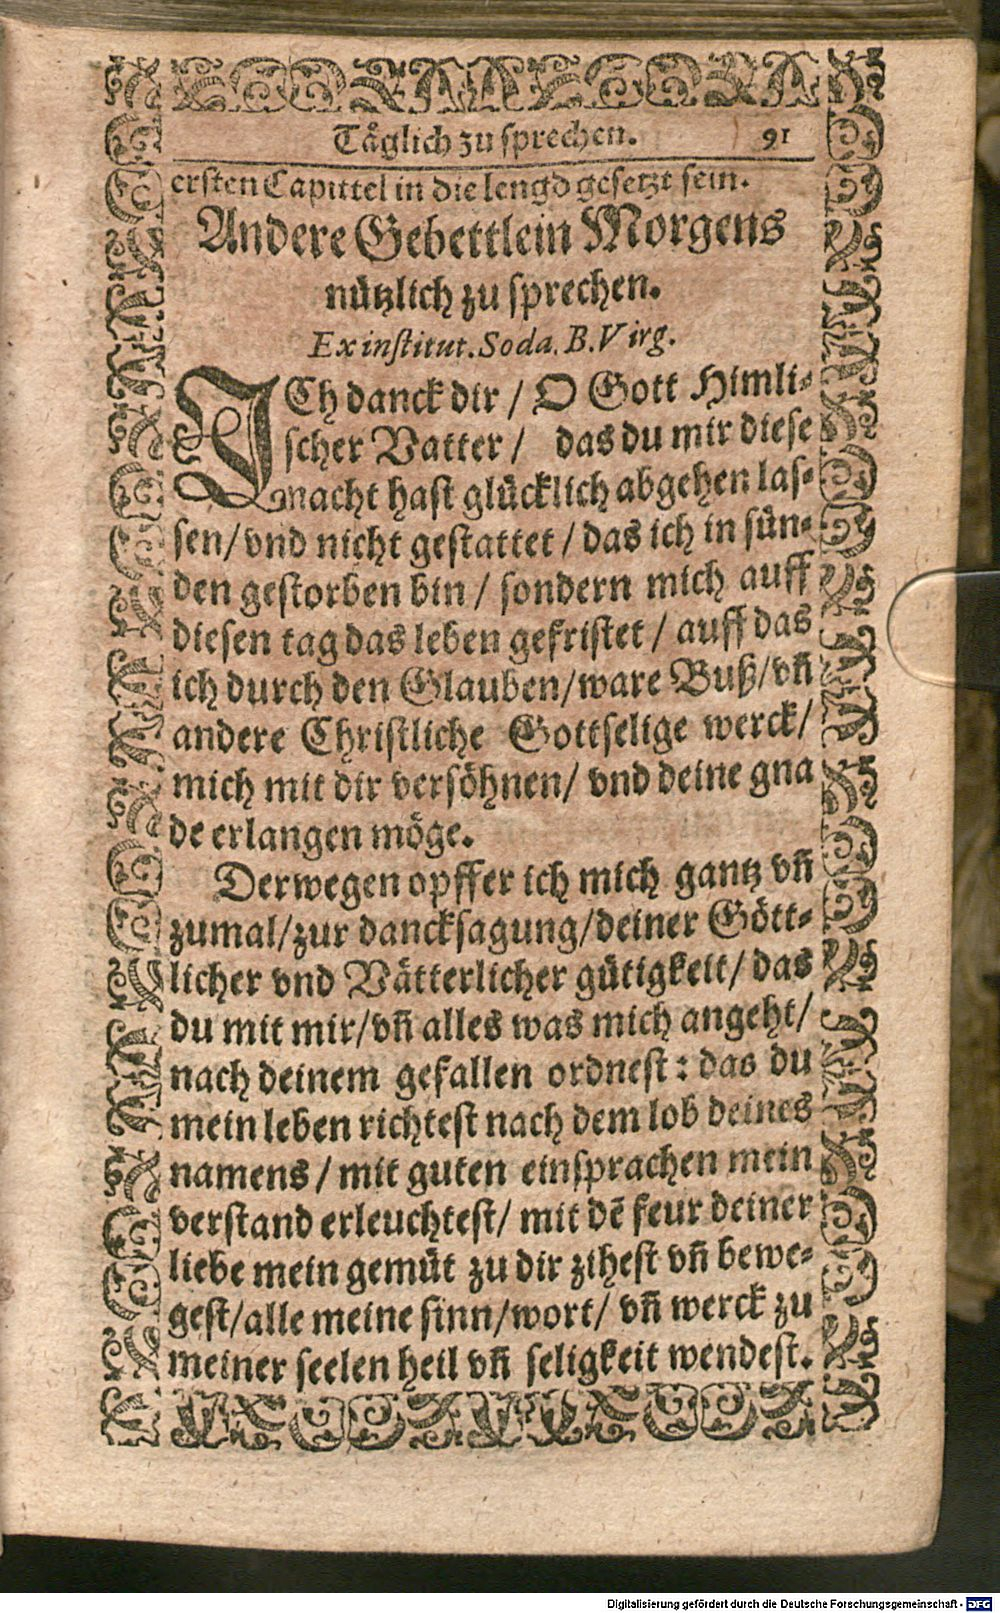 Täglich zu sprechen. 91
ersten Capittel in die lengd gesetzt sein.
Andere Gebettlein Morgens
nützlich zu sprechen.
Ex institut. Soda. B. Virg.
ICh danck dir / O Gott Himli-
scher Vatter / das du mir diese
nacht hast glücklich abgehen las-
sen/ vnd nicht gestattet / das ich in sün-
den gestorben bin / sondern mich auff
diesen tag das leben gefristet / auff das
ich durch den Glauben/ware Buß/vñ
andere Christliche Gottselige werck/
mich mit dir versöhnen/ vnd deine gna
de erlangen möge.
Derwegen opffer ich mich gantz vñ
zumal/zur dancksagung/deiner Gött-
licher vnd Vätterlicher gütigkeit/ das
du mit mir/vñ alles was mich angeht/
nach deinem gefallen ordnest: das du
mein leben richtest nach dem lob deines
namens / mit guten einsprachen mein
verstand erleuchtest/ mit dẽ feur deiner
liebe mein gemüt zu dir zihest vñ bewe-
gest/alle meine sinn/wort/ vñ werck zu
meiner seelen heil vñ seligkeit wendest.
Digitalisierung gefördert durch die Deutsche Forschungsgemeinschaft - DFG